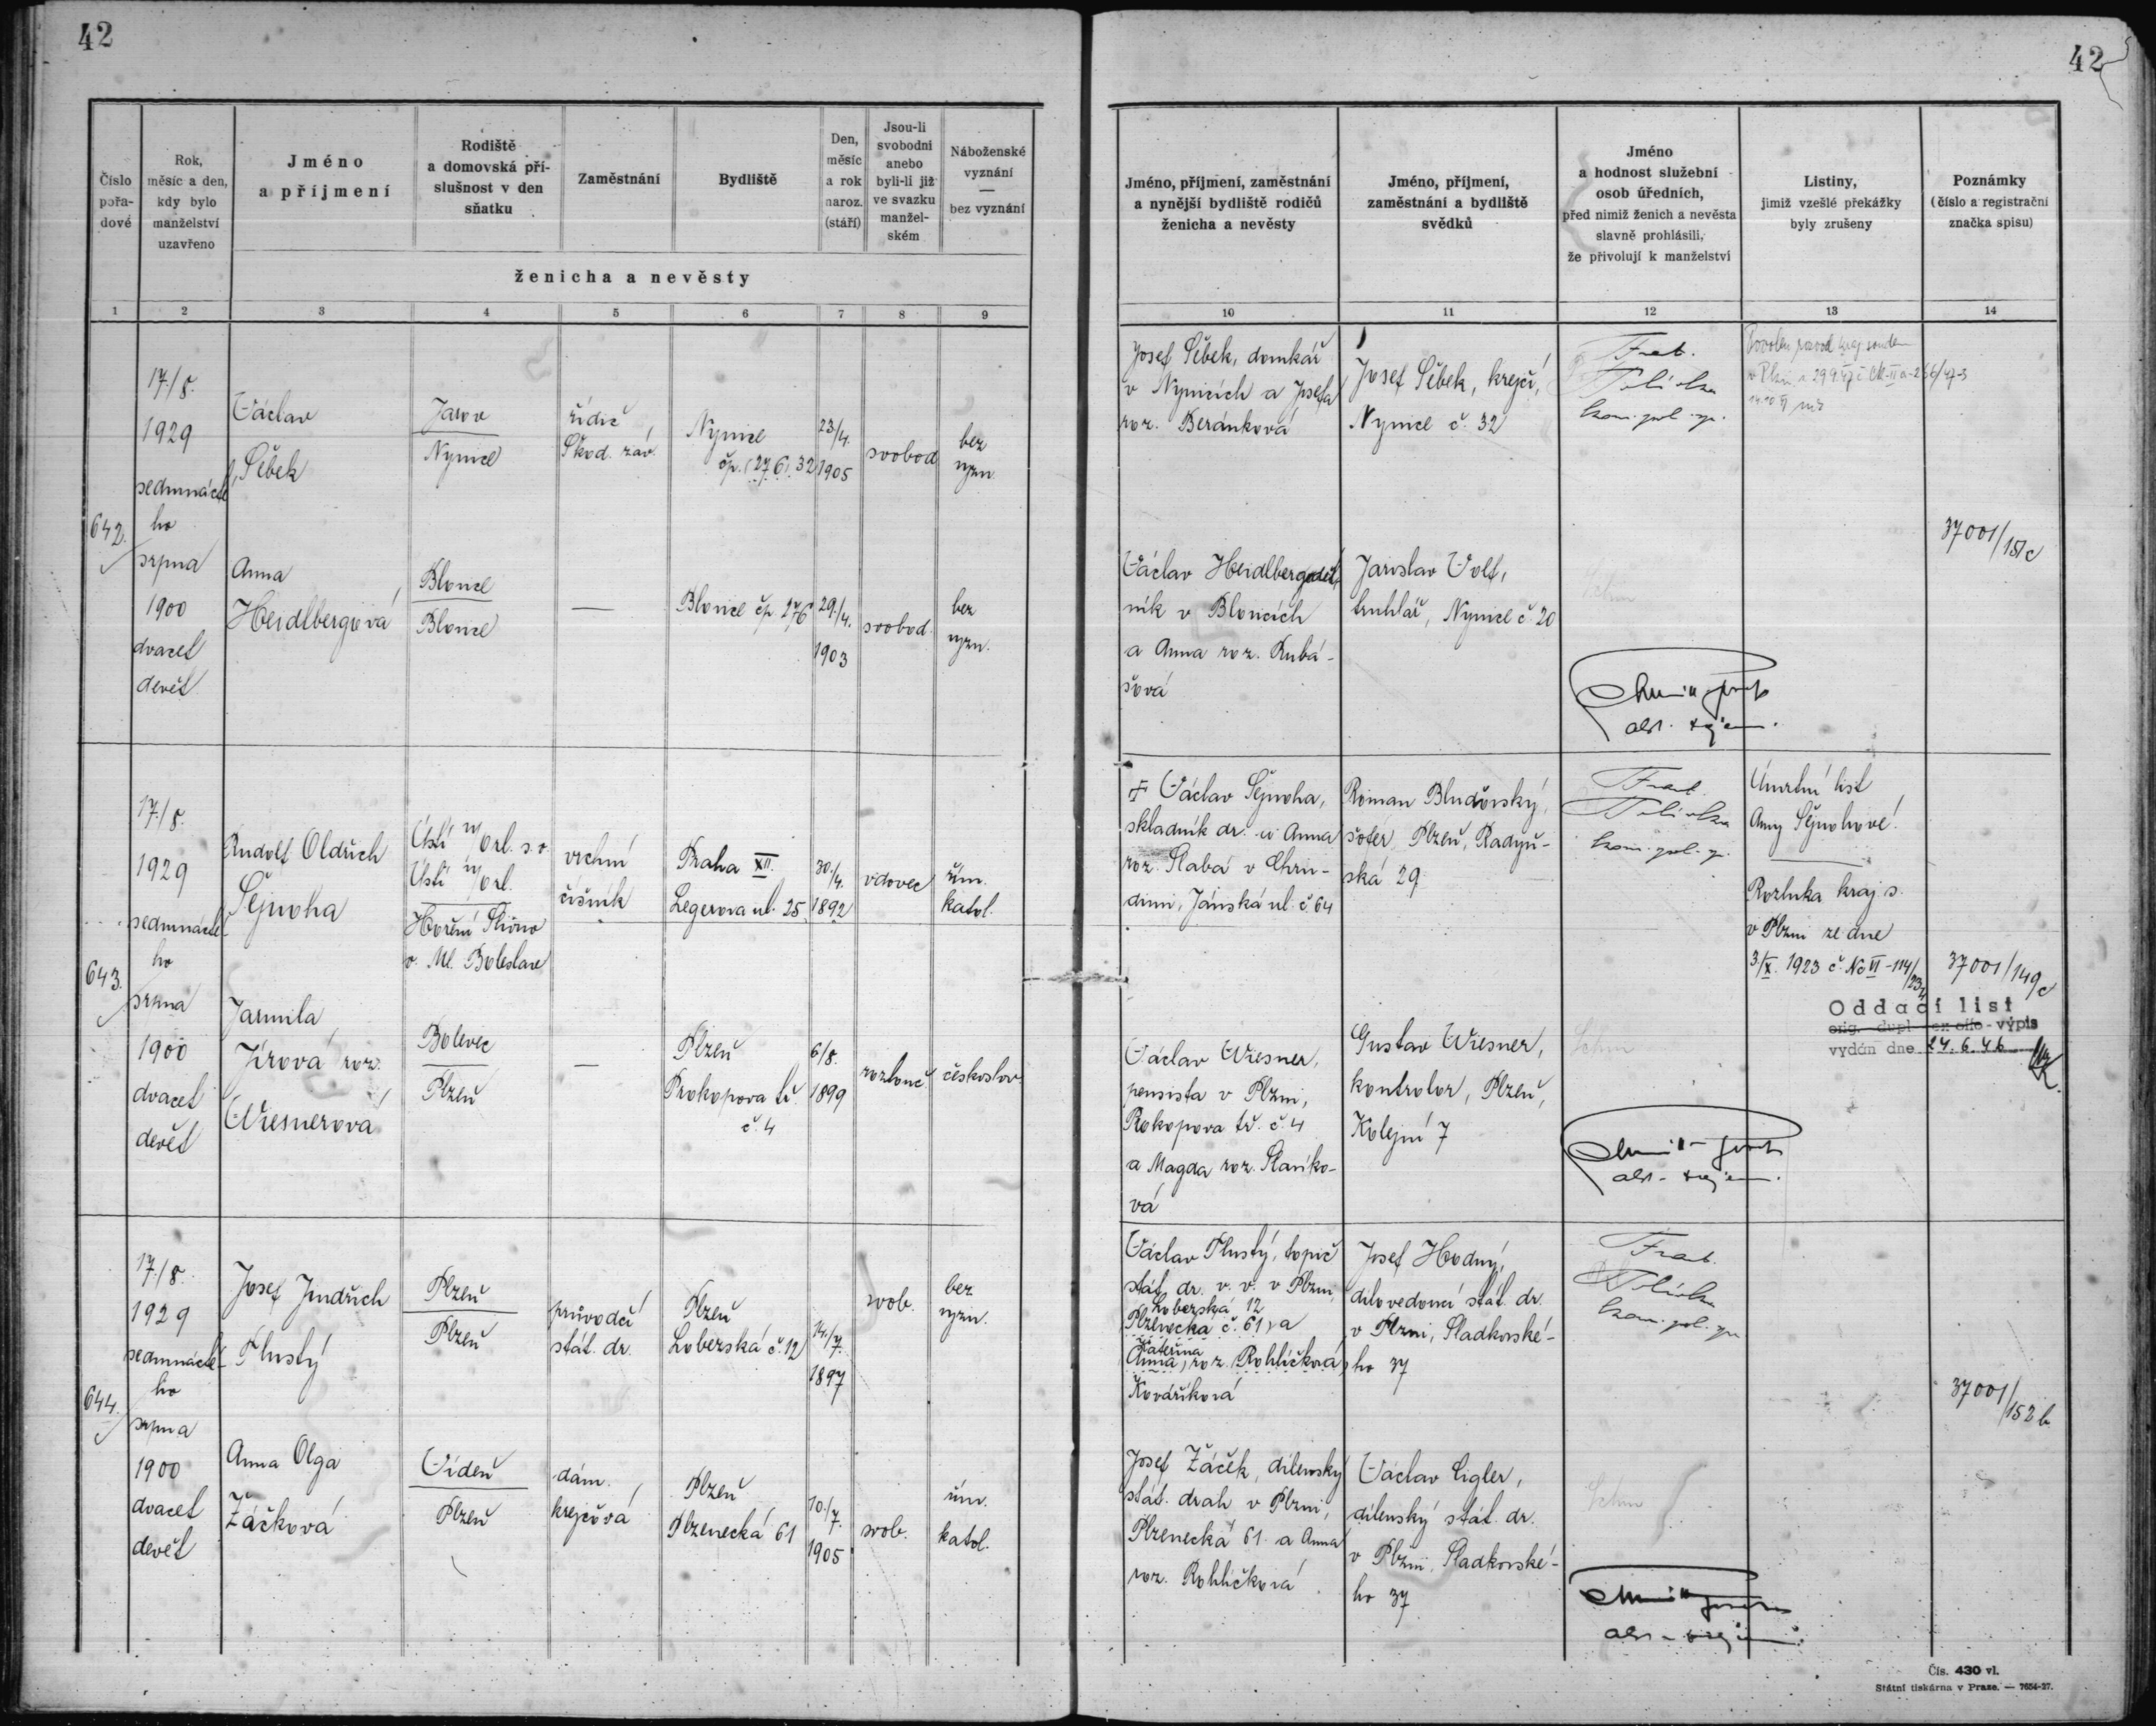 42
42
Číslo pořa-dové
Rok, měsíc a den, kdy bylo manželství uzavřeno
Jméno a příjmení
Rodiště a domovská pří-slušnost v den sňatku
Zaměstnání
Bydliště
Den, měsíc a rok naroz. (stáří)
Jsou-li svobodni anebo byli-li již ve svazku manžel-ském
Náboženské vyznání — bez vyznání
ženicha a nevěsty
Jméno, příjmení, zaměstnání a nynější bydliště rodičů ženicha a nevěsty
Jméno, příjmení, zaměstnání a bydliště svědků
Jméno a hodnost služební osob úředních, před nimiž ženich a nevěsta slavně prohlásili, že přivolují k manželství
Listiny, jimiž vzešlé překážky byly zrušeny
Poznámky (číslo a registrační značka spisu)
1 2 3 4 5 6 7 8 9 10 11 12 13 14
642.
17./8.
1929
sedmnácté
ho
srpna
1900
dvacet
devět
Václav
Šébek
Jarov
Nynice
řidič
Škod. záv.
Nynice
čp. (276) 32
23/4.
1905
svobod
bez
vyzn.
Josef Šébek, domkář
v Nynicích a Josefa
roz. Beránková
Josef Šébek, krejčí,
Nynice č. 32
kom. pol. spr.
Anna
Heidlbergová
Blovice
Blovice
—
Blovice čp. 276
29./4.
1903
svobod.
bez
vyzn.
Václav Heidlberg děl
ník v Blovicích
a Anna roz. Kubá-
šová
Jaroslav Volf,
truhlář, Nynice č. 20
Schm
37001/151c
643.
17./8.
1929
sedmnácté
ho
srpna
1900
dvacet
devět
Rudolf Oldřich
Šejnoha
Ústí n/Orl. s. o.
Ústí n/Orl.
Hoření Slivno
o. Ml. Boleslav
vrchní
číšník
Praha XII.
Legerova ul. 25
30./4.
1892
vdovec
řím.
katol.
Václav Šejnoha,
skladník dr. a Anna
roz. Slabá v Chru-
dimi, Jánská ul. č 64
Roman Bludovský,
šofér, Plzeň, Radyň-
ská 29
kom. pol. spr.
Úmrtní list
Anny Šejnohové.
Rozluka kraj. s.
v Plzni ze dne
3./X. 1923 č. Nc VI-114/23
37001/149c
Oddací list
orig. dupl. ex offo - výpis
vydán dne 24.6.46
Jarmila
Jírová roz.
Wiesnerová
Bolevec
Plzeň
—
Plzeň
Prokopova tř.
č. 4
6/8.
1899
rozlouč.
českoslov.
Václav Wiesner,
pensista v Plzni,
Prokopova tř. č. 4
a Magda roz. Slavíko-
vá
Gustav Wiesner,
kontrolor, Plzeň,
Kolejní 7
Schm
644.
17./8.
1929
sedmnácté-
ho
srpna
1900
dvacet
devět
Josef Jindřich
Tlustý
Plzeň
Plzeň
průvodčí
stát. dr.
Plzeň
Lobezská č. 12
14./7.
1897
svob.
bez
vyzn.
Václav Tlustý, topič
stát. dr. v. v. v Plzni
Lobezská 12
Plzenecká č. 61, a
Kateřina
Anna, roz. Rohlíčková
Kovaříková
Josef Hodný,
dílovedoucí stát. dr.
v Plzni, Sladkovské-
ho 37
kom. pol. spr.
37001/152b
Anna Olga
Žáčková
Vídeň
Plzeň
dám.
krejčová
Plzeň
Plzenecká 61
10./7.
1905
svob.
řím.
katol.
Josef Žáček, dílenský
stát. drah v Plzni,
Plzenecká 61. a Anna
roz. Rohlíčková
Václav Cigler,
dílenský stát. dr.
v Plzni, Sladkovské-
ho 37
Schm
Čís. 430 vl.
Státní tiskárna v Praze. — 7654-27.